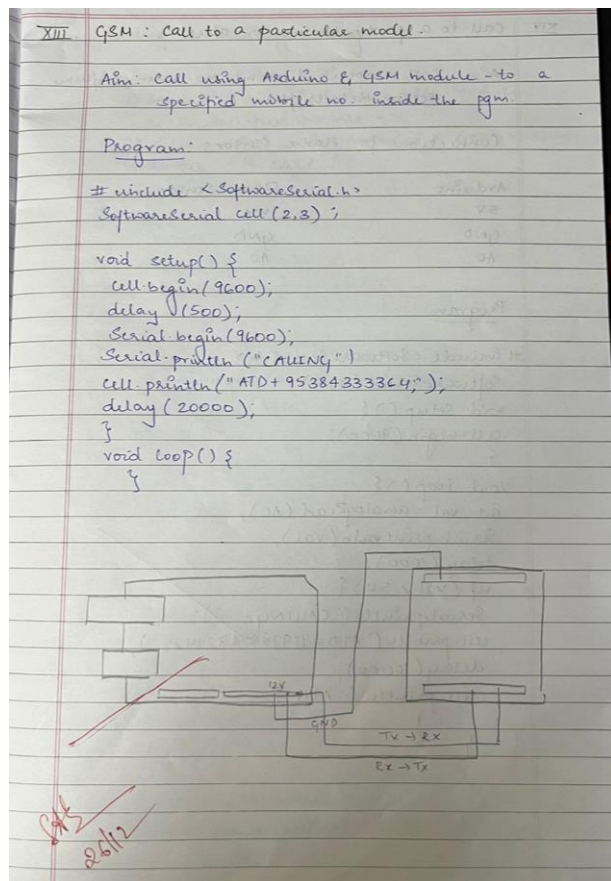 XIII GSM : Call to a particular model.
Aim: Call using Arduino & GSM module - to a
specified mobile no. inside the pgm.
Program:
# include <SoftwareSerial.h>
SoftwareSerial cell (2,3) ;
void setup() {
cell.begin(9600);
delay (500);
Serial.begin(9600);
Serial.println ("CALLING")
cell.println("ATD+95384333364;");
delay (20000);
}
void loop() {
}
12V
GND
Tx → Rx
Rx → Tx
26/12